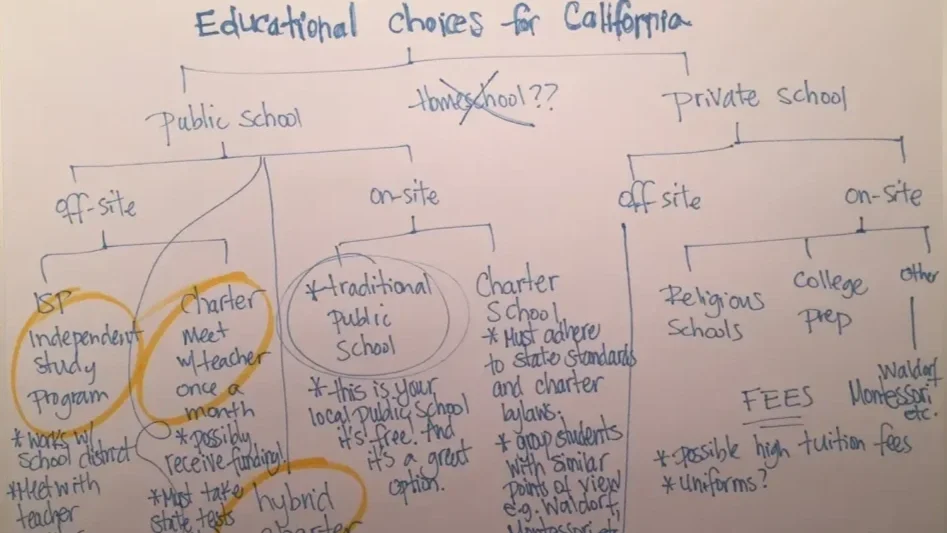 Educational choices for California
Public school
Homeschool??
Private school
off-site
on-site
off site
on-site
ISP
Independent
Study
Program
*works w/
School district
*Meet with
teacher
Charter
Meet
w/-teacher
once a
month
*possibly
receive funding!
*Must take
state tests
hybrid
charter
*traditional
public
School
*this is your
local public school
it's free. And
it's a great
option.
Charter
School
*Must adhere
to state standards
and charter
bylaws.
*group students
with similar
points of view
e.g. Waldorf,
Montessori etc.
Religious
Schools
College
prep
other
Waldorf
Montessori
etc.
FEES
*Possible high tuition fees
*Uniforms?